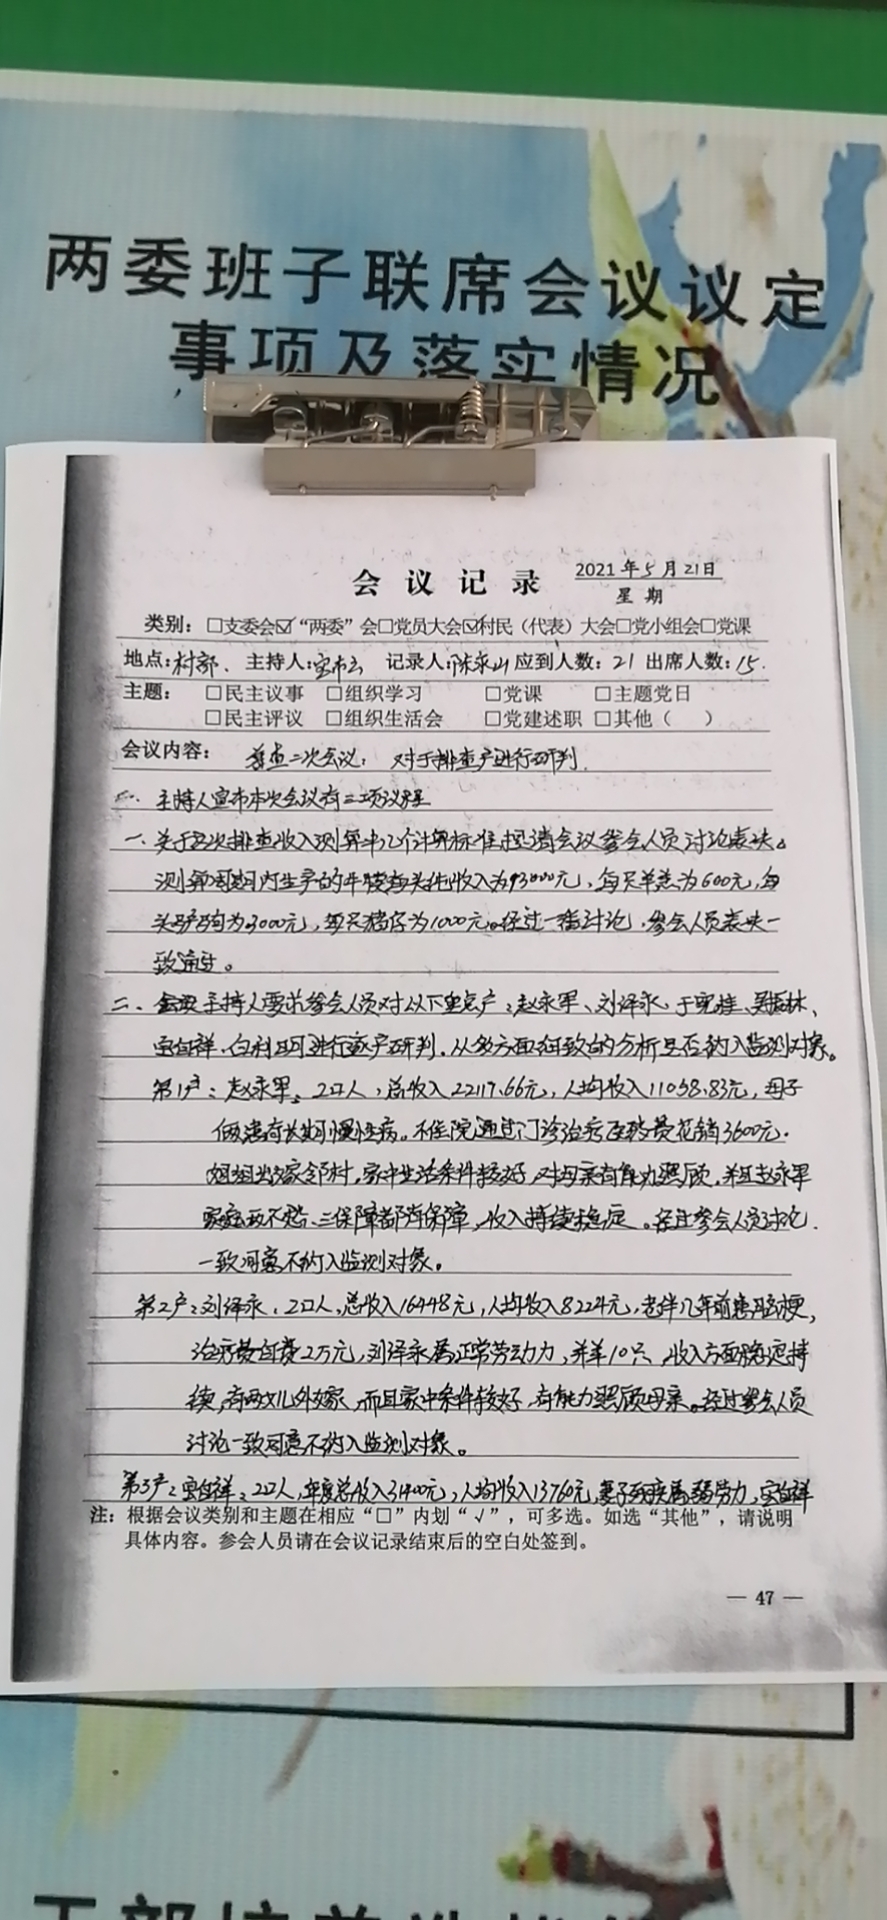 两委班子联席会议议定
事项及落实情况
会议记录
2021年5月21日
星期
类别：□支委会☑“两委”会□党员大会☑村民（代表）大会□党小组会□党课
地点：村部、主持人：宝 记录人：陈永山 应到人数：21 出席人数：15.
主题：□民主议事 □组织学习 □党课 □主题党日
□民主评议 □组织生活会 □党建述职 □其他（ ）
会议内容： 普查二次会议：对于排查户进行研判.
主持人宣布本次会议有二项议程
一、关于 次排查收入测算中几个计算标准提请会议参会人员讨论表决。
测算周期内生产的牛 每头 收入为 元，每只羊羔为600元，每
头驴驹为3000元，每只猪仔为1000元。经过一番讨论，参会人员表决一
致通过。
二、 主持人要求参会人员对以下重点户：赵永军、刘泽永、于宪桂、吴 林、
宝白祥、白利 进行逐户研判，从多方面细致的分析是否纳入监测对象。
第1户：赵永军，2口人，总收入22117.66元，人均收入11058.83元，母子
俩患有长期慢性病。不住院通过门诊治疗医药费花销3600元.
姐姐出嫁邻村，家中生活条件较好，对母亲有能力照顾，并且赵永军
家庭 不愁、三保障都有保障，收入持续稳定。经过参会人员讨论.
一致同意不纳入监测对象。
第2户：刘泽永，2口人，总收入16448元，人均收入8224元，老伴几年前患脑梗，
治疗费自费2万元，刘泽永属正常劳动力，养羊10只，收入方面稳定持
续，有两女儿外嫁，而且家中条件较好，有能力照顾母亲。经过参会人员
讨论一致同意不纳入监测对象。
第3户：宝白祥，2口人，年度总收入31400元，人均收入13760元，妻子残疾属弱劳力，宝白祥
注：根据会议类别和主题在相应“□”内划“√”，可多选。如选“其他”，请说明
具体内容。参会人员请在会议记录结束后的空白处签到。
— 47 —